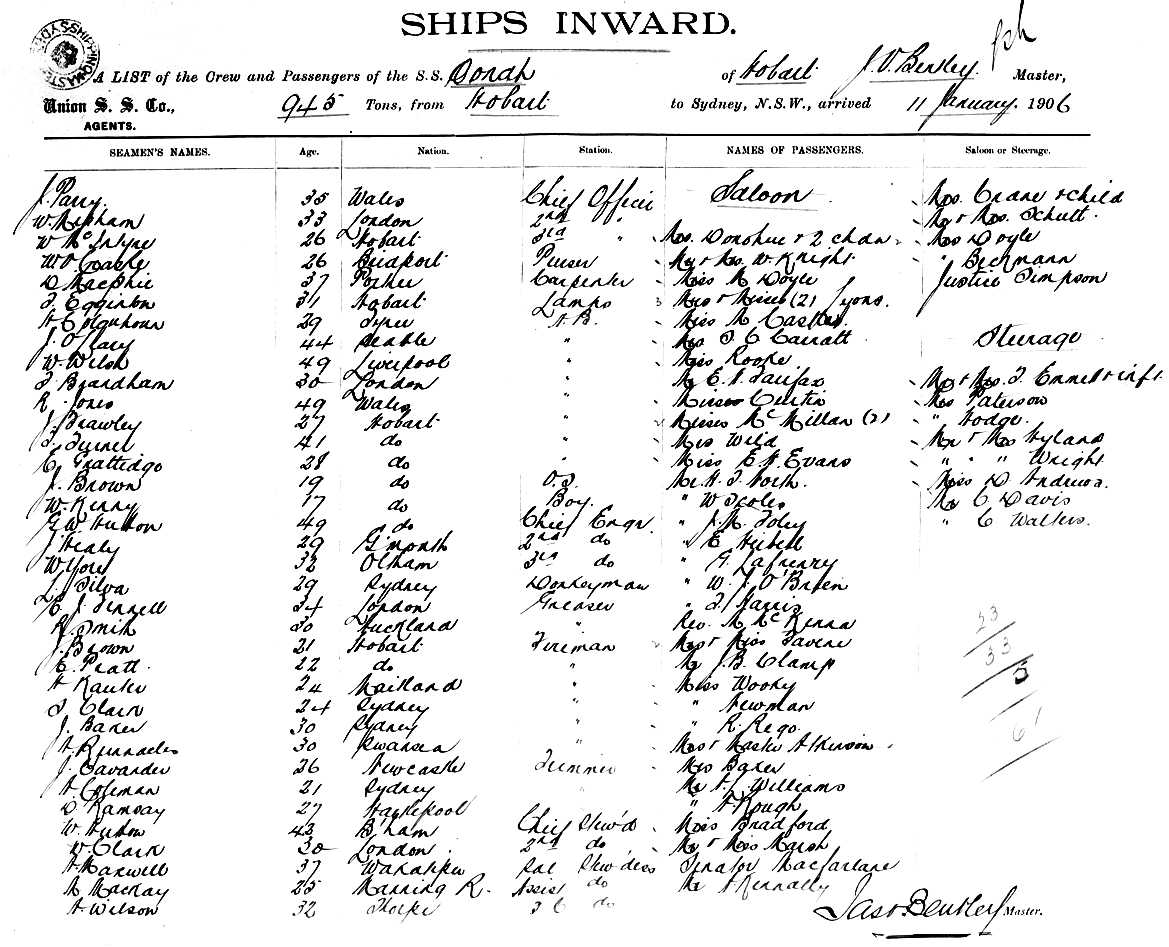 SHIPS INWARD.
A LIST of the Crew and Passengers of the S.S. Oonah of Hobart J. V. Bentley Master,
Union S. S. Co., AGENTS. 945 Tons, from Hobart to Sydney, N.S.W., arrived 11 January 1906
SEAMEN'S NAMES. Age. Nation. Station. NAMES OF PASSENGERS. Saloon or Steerage.
J. Parry 35 Wales Chief Officer Saloon Mrs. Crane & child
W. Mepham 33 London 2nd " Mr & Mrs. Schutt
W. McIntyre 26 Hobart 3rd " Mrs. Donohue & 2 chdn Mrs Doyle
26 Bridport Purser Mr & Mrs. W Knight " Beckmann
D Macphie 37 Carpenter Miss M Doyle Justice Simpson
Egginton 31 Hobart Lamps Misses (2) Lyons.
A Colquhoun 29 A.B. Miss M Castles
J. O'Leary 44 " Garratt Steerage
W. Wilson 49 Liverpool " Miss Rooke
Brandham 30 London " Mr E. Fairfax Mr & Mrs. Emmett & inft.
R. Jones 49 Wales " Misses Curtin Mrs Paterson
J. Brawley 27 Hobart " Misses McMillan (2) " Hodge
Turner 41 do " Mr & Mrs Hyland
Grattidge 28 do " Miss E. H. Evans " " " Wright
J. Brown 19 do O.S. Mr. H. North. Miss D Andrews.
W. Kenny 17 do Boy. " W Scoles Mr C Davis
G. W. Hutton 49 do Chief Engr " J. M. Foley " C Walters.
J Healy 29 G'mouth 2nd do " E
W. Yore 32 Olham 3rd do " G.
L. Silva 29 Sydney Donkeyman " W. J. O'Brien
E. J. Fennell 34 London Greaser " Harris
R. Smith 30 Auckland " Rev. M. McKenna
J. Brown 21 Hobart Fireman
E. Pratt 22 do " Mr J. B. Clamp
A 24 Maitland " Miss Wooky
Clark 24 Sydney " " Newman
J. Baker 30 Sydney " " R. Rego
A. Runnacles 30 Swansea " Mrs & Master Atkinson
J. Cavander 26 Newcastle Trimmer Mrs Baker
A. Coleman 21 Sydney " Mr A. Williams
D Ramsay 27 Hartlepool " A Rough
W. 43 B'ham Chief Stew'd Miss Bradford
W. Clark 30 London 2nd do Mr & Miss Marsh
A Maxwell 37 Sal Stew'dess Senator Macfarlane
M Mackay 25 Manning R. Assist do Mr A Kennally
A. Wilson 32 Thorpe 3rd do
23
33
5
61
Jas V. Bentley Master.